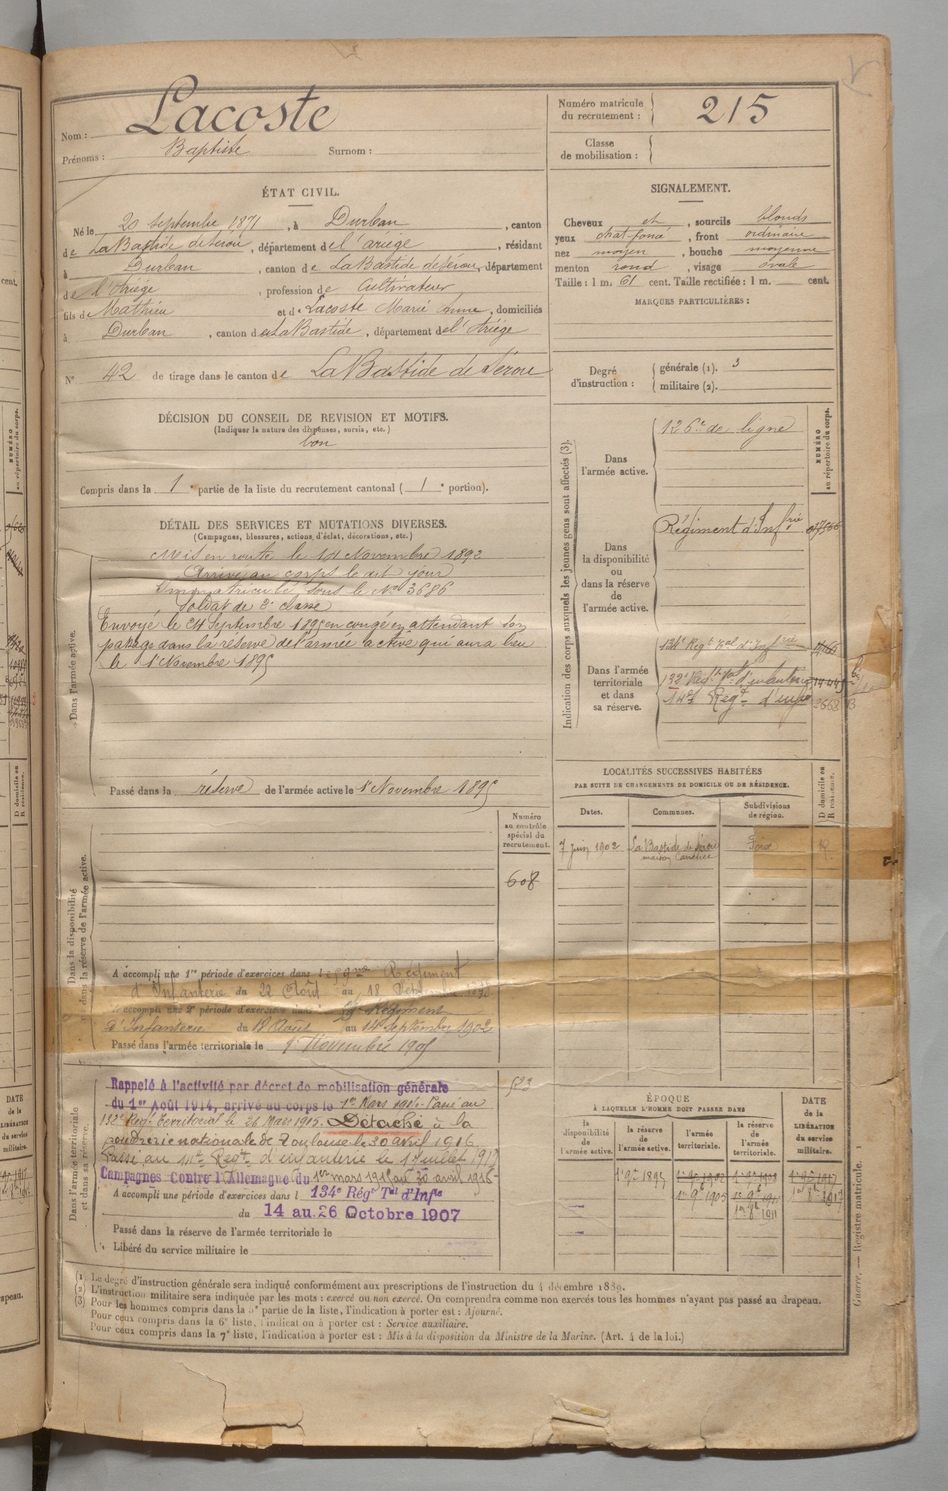 Nom : Lacoste
Prénoms : Baptiste Surnom :
Numéro matricule du recrutement : 215
Classe de mobilisation :
ÉTAT CIVIL.
Né le 20 septembre 1871, à Durban, canton
de La Bastide de Sérou, département de l'ariège, résidant
à Durban, canton de La Bastide de Sérou, département
de l'Ariège, profession de cultivateur
fils de Mathieu et de Lacoste Marie Anne, domiciliés
à Durban, canton de La Bastide, département de l'Ariège
N° 42 de tirage dans le canton de La Bastide de Sérou
SIGNALEMENT.
Cheveux et, sourcils blonds
yeux chat foncé, front ordinaire
nez moyen, bouche moyenne
menton rond, visage ovale
Taille : 1 m. 61 cent. Taille rectifiée : 1 m. cent.
MARQUES PARTICULIÈRES :
Degré d'instruction : générale (1). 3
militaire (2).
DÉCISION DU CONSEIL DE REVISION ET MOTIFS.
(Indiquer la nature des dispenses, sursis, etc.)
bon
Compris dans la 1e partie de la liste du recrutement cantonal (1e portion).
DÉTAIL DES SERVICES ET MUTATIONS DIVERSES.
(Campagnes, blessures, actions d'éclat, décorations, etc.)
Dans l'armée active.
Mis en route le 11 Novembre 1892
Arrivé au corps le dit jour
Immatriculé sous le No 3686
Soldat de 2e classe
Envoyé le 24 Septembre 1895 en congé en attendant son
passage dans la réserve de l'armée active qui aura lieu
le 1er Novembre 1895
Passé dans la réserve de l'armée active le 1er Novembre 1895
Indication des corps auxquels les jeunes gens sont affectés (3).
NUMÉRO au répertoire du corps.
Dans l'armée active.
126e de ligne
Dans la disponibilité ou dans la réserve de l'armée active.
Régiment d'Infrie
Dans l'armée territoriale et dans sa réserve.
134e Regt Tal d'Infrie
132e Regt Tal d'infanterie
Regt d'infie
LOCALITÉS SUCCESSIVES HABITÉES
PAR SUITE DE CHANGEMENTS DE DOMICILE OU DE RÉSIDENCE.
Dates. Communes. Subdivisions de région. D domicile ou R résidence.
7 juin 1902 La Bastide de Sérou Foix R
maison
Dans la disponibilité ou dans la réserve de l'armée active.
Numéro au contrôle spécial du recrutement.
608
A accompli une 1re période d'exercices dans le Régiment
d'Infanterie du 22 Août au 18 Septembre
A accompli une 2e période d'exercices dans Régiment
d'Infanterie du 18 Août au 14 septembre 1902
Passé dans l'armée territoriale le 1er Novembre 1905
Dans l'armée territoriale et dans sa réserve.
Rappelé à l'activité par décret de mobilisation générale
du 1er Août 1914, arrivé au corps le 1er Mars 1915. Passé au
132e Regt Territorial le 26 Mars 1915. Détaché à la
poudrerie nationale de Toulouse le 30 avril 1916
Passé au Regt d'infanterie le 1er juillet 1917
Campagnes Contre l'Allemagne du 1er mars 1915 au 30 avril 1916
A accompli une période d'exercices dans l 134e Régt Tal d'Infie
du 14 au 26 Octobre 1907
Passé dans la réserve de l'armée territoriale le
Libéré du service militaire le
ÉPOQUE
À LAQUELLE L'HOMME DOIT PASSER DANS
la disponibilité de l'armée active. la réserve de l'armée active. l'armée territoriale. la réserve de l'armée territoriale.
DATE de la LIBÉRATION du service militaire.
1er 9bre 1895
1er 9bre 1905
Guerre. — Registre matricule.
(1) Le degré d'instruction générale sera indiqué conformément aux prescriptions de l'instruction du 4 décembre 1889.
(2) L'instruction militaire sera indiquée par les mots : exercé ou non exercé. On comprendra comme non exercés tous les hommes n'ayant pas passé au drapeau.
(3) Pour les hommes compris dans la 5e partie de la liste, l'indication à porter est : Ajourné.
Pour ceux compris dans la 6e liste, l'indication à porter est : Service auxiliaire.
Pour ceux compris dans la 7e liste, l'indication à porter est : Mis à la disposition du Ministre de la Marine. (Art. 4 de la loi.)